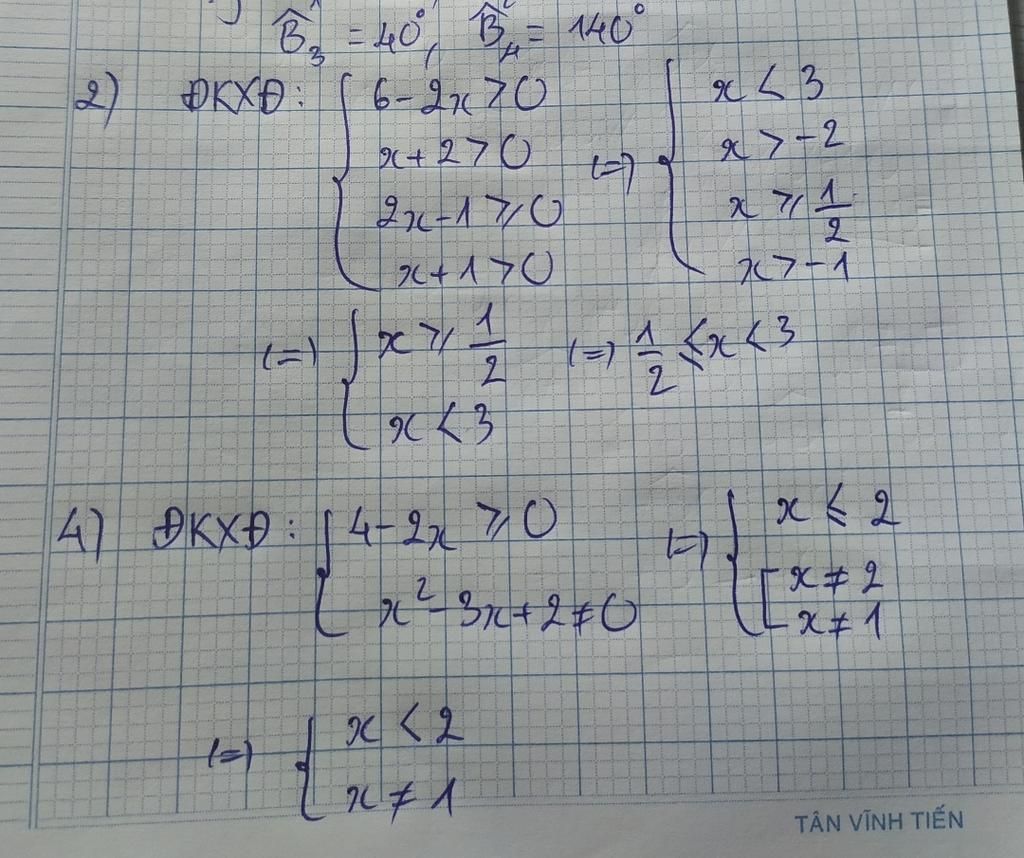 B̂₃ = 40°, B̂₄ = 140°
2) ĐKXĐ: { 6 - 2x > 0 (=) { x < 3
x + 2 > 0 x > -2
2x - 1 ⩾ 0 x ⩾ 1/2
x + 1 > 0 x > -1
(=) { x ⩾ 1/2 (=) 1/2 ⩽ x < 3
x < 3
4) ĐKXĐ: { 4 - 2x ⩾ 0 (=) { x ⩽ 2
x² - 3x + 2 ≠ 0 [ x ≠ 2
x ≠ 1
(=) { x < 2
x ≠ 1
TÂN VĨNH TIẾN